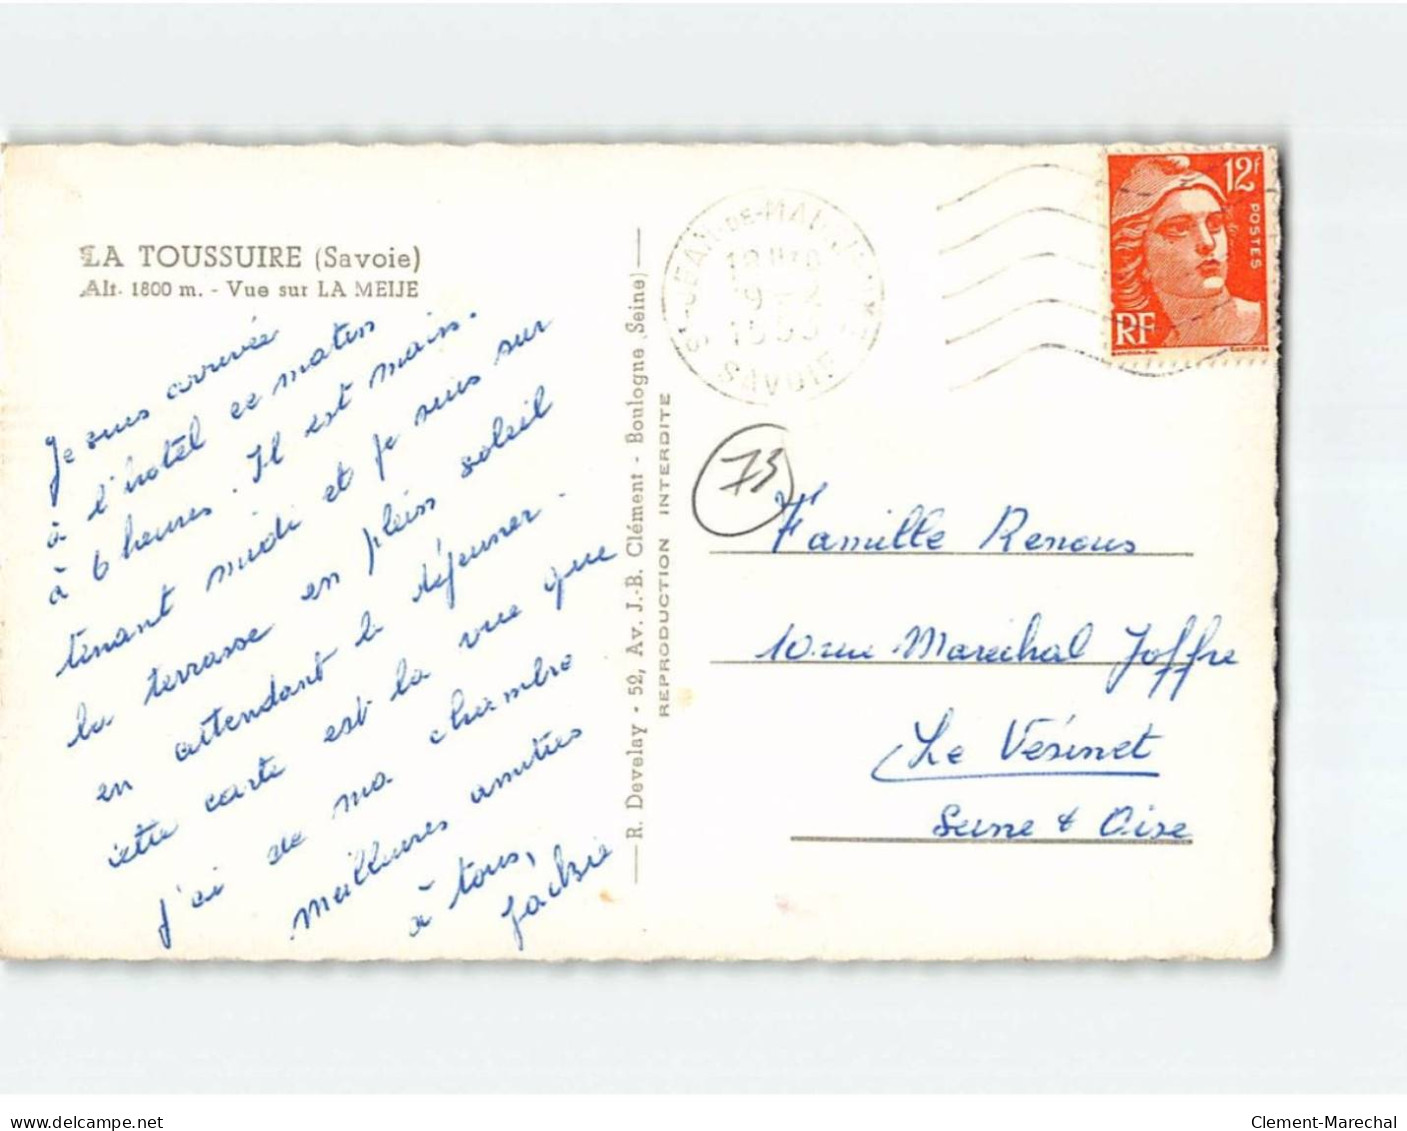 LA TOUSSUIRE (Savoie)
Alt. 1800 m. - Vue sur LA MEIJE
Je suis arrivée
à l'hotel ce matin
à 6 heures. Il est main-
tenant midi et je suis sur
la terrasse en plein soleil
en attendant le déjeuner.
cette carte est la vue que
j'ai de ma chambre
meilleures amitiés
à tous,
Jackie
R. Develay - 52, Av. J.-B. Clément - Boulogne (Seine)
REPRODUCTION INTERDITE
ST-JEAN-DE-MAURIENNE
SAVOIE
12F
POSTES
RF
73
Famille Renous
10 rue Marechal Joffre
Le Vésinet
Seine & Oise
www.delcampe.net
Clement-Marechal